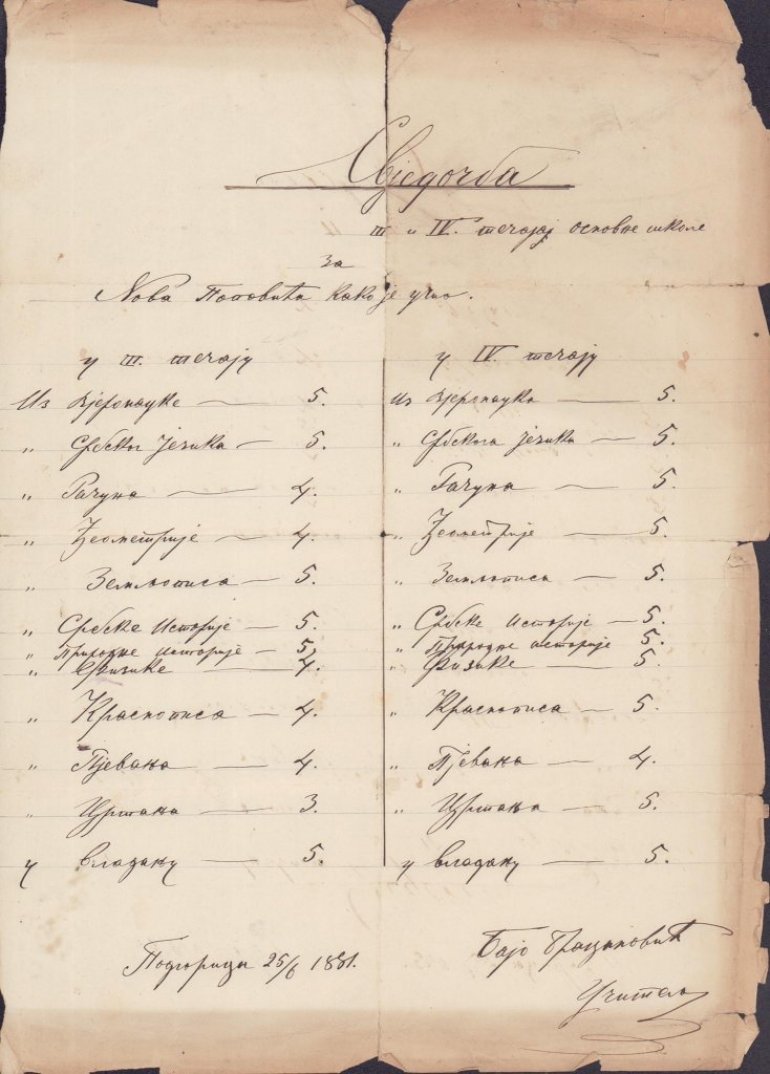 Свједочба
III и IV. течај основне школе
за
Нова Поповића како је учио.
у III. течају
Из вјеронауке — 5.
„ Србског језика — 5.
„ Рачуна — 4.
„ Ђеометрије — 4.
„ Земљописа — 5.
„ Србске Историје — 5.
„ Природне историје — 5.
„ Физике — 4.
„ Краснописа — 4.
„ Пјевања — 4.
„ Цртања — 3.
у владању — 5.
у IV течају
Из вјеронауке — 5.
„ Србскога језика — 5.
„ Рачуна — 5.
„ Ђеометрије — 5.
„ Земљописа — 5.
„ Србске Историје — 5.
„ Природне историје 5.
„ Физике — 5.
„ Краснописа — 5.
„ Пјевања — 4.
„ Цртања — 5.
у владању — 5.
Подгорица 25/6 1881.
Бајо
Учитељ